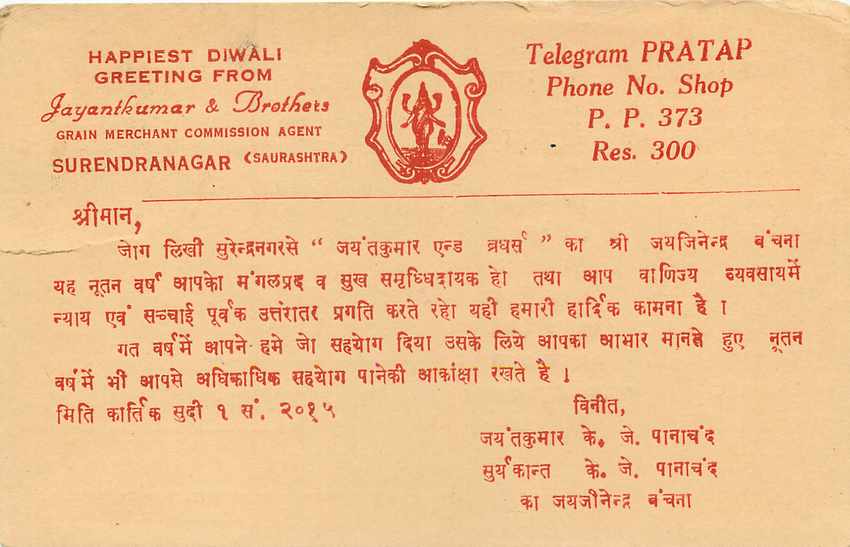 HAPPIEST DIWALI
GREETING FROM
Jayantkumar & Brothers
GRAIN MERCHANT COMMISSION AGENT
SURENDRANAGAR (SAURASHTRA)
Telegram PRATAP
Phone No. Shop
P. P. 373
Res. 300
श्रीमान,
जोग लिखी सुरेन्द्रनगरसे “ जयंतकुमार एन्ड ब्रधर्स ” का श्री जयजिनेन्द्र बंचना
यह नूतन वर्ष आपको मंगलप्रद व सुख समृध्धिदायक हो तथा आप वाणिज्य व्यवसायमें
न्याय एवं सच्चाई पूर्वक उत्तंरातर प्रगति करते रहो यही हमारी हार्दिक कामना है ।
गत वर्षमें आपने हमे जो सहयोग दिया उसके लिये आपका आभार मानते हुए नूतन
वर्षमें भी आपसे अधिकाधिक सहयोग पानेकी आकांक्षा रखते है ।
मिति कार्तिक सुदी १ सं. २०१५
विनीत,
जयंतकुमार के. जे. पानाचंद
सुर्यकान्त के. जे. पानाचंद
का जयजीनेन्द्र बंचना